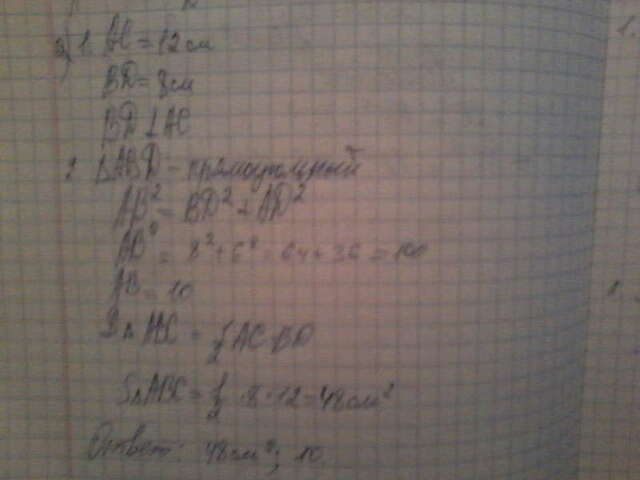 3) 1. AC = 12 см
BD = 8 см
BD ⊥ AC
2. ΔABD - прямоугольный
AB² = BD² + AD²
AB² = 8² + 6² = 64 + 36 = 100
AB = 10
SΔABC = ½ AC·BD
SΔABC = ½ · 8 · 12 = 48 см²
Ответ: 48 см²; 10.
1.